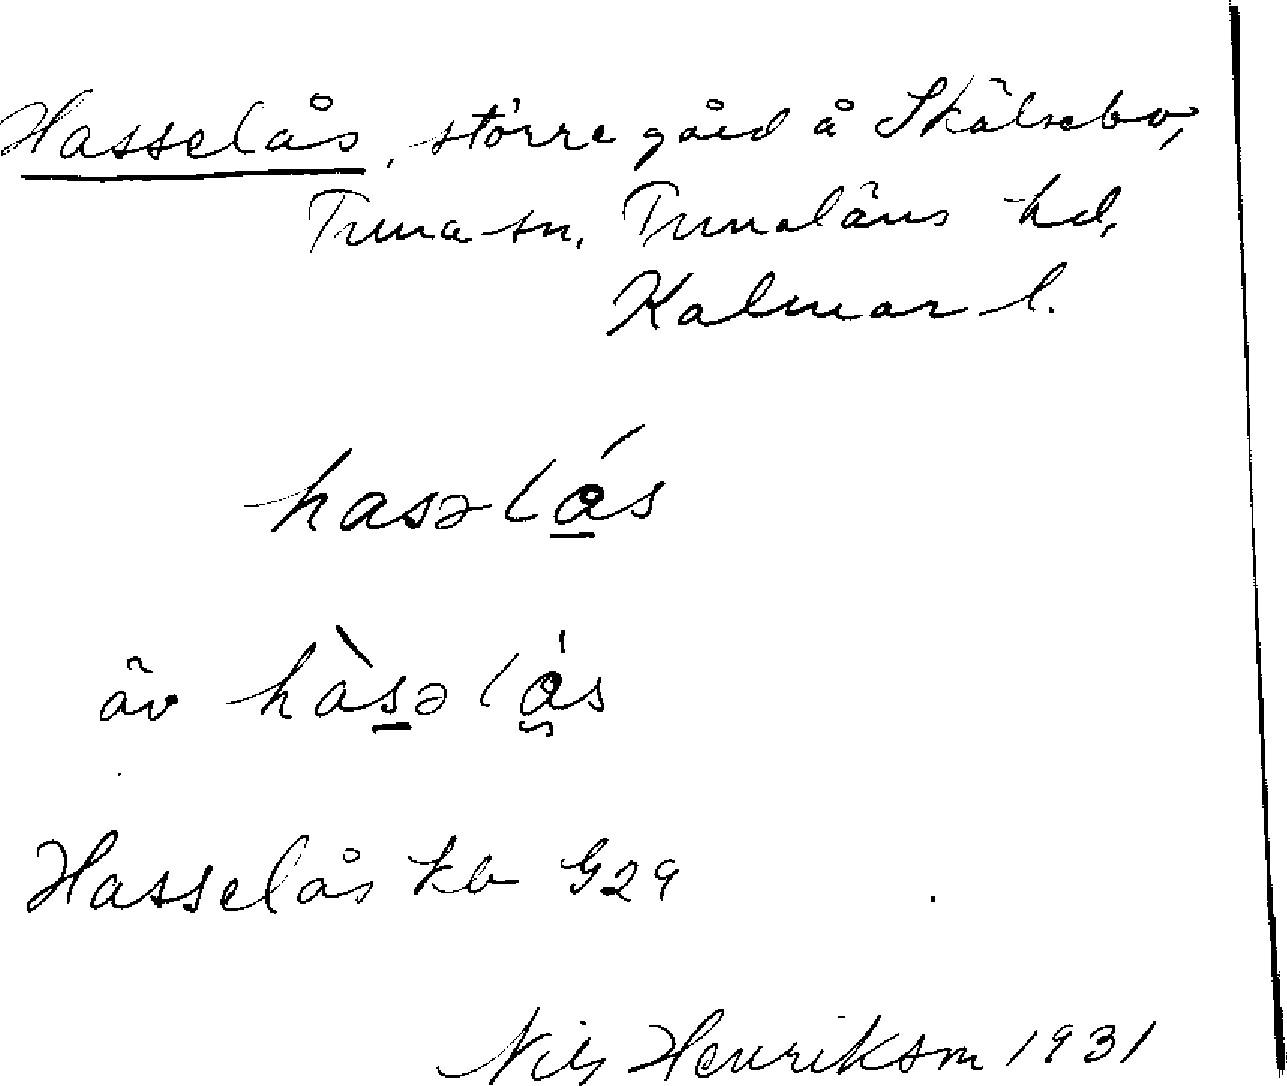 Hasselås, större gård å Skälsebo,
Tuna sn, Tunaläns hd,
Kalmar l.
hasəlås
äv hàsəlås
Hasselås kb G29
Nils Henrikson 1931